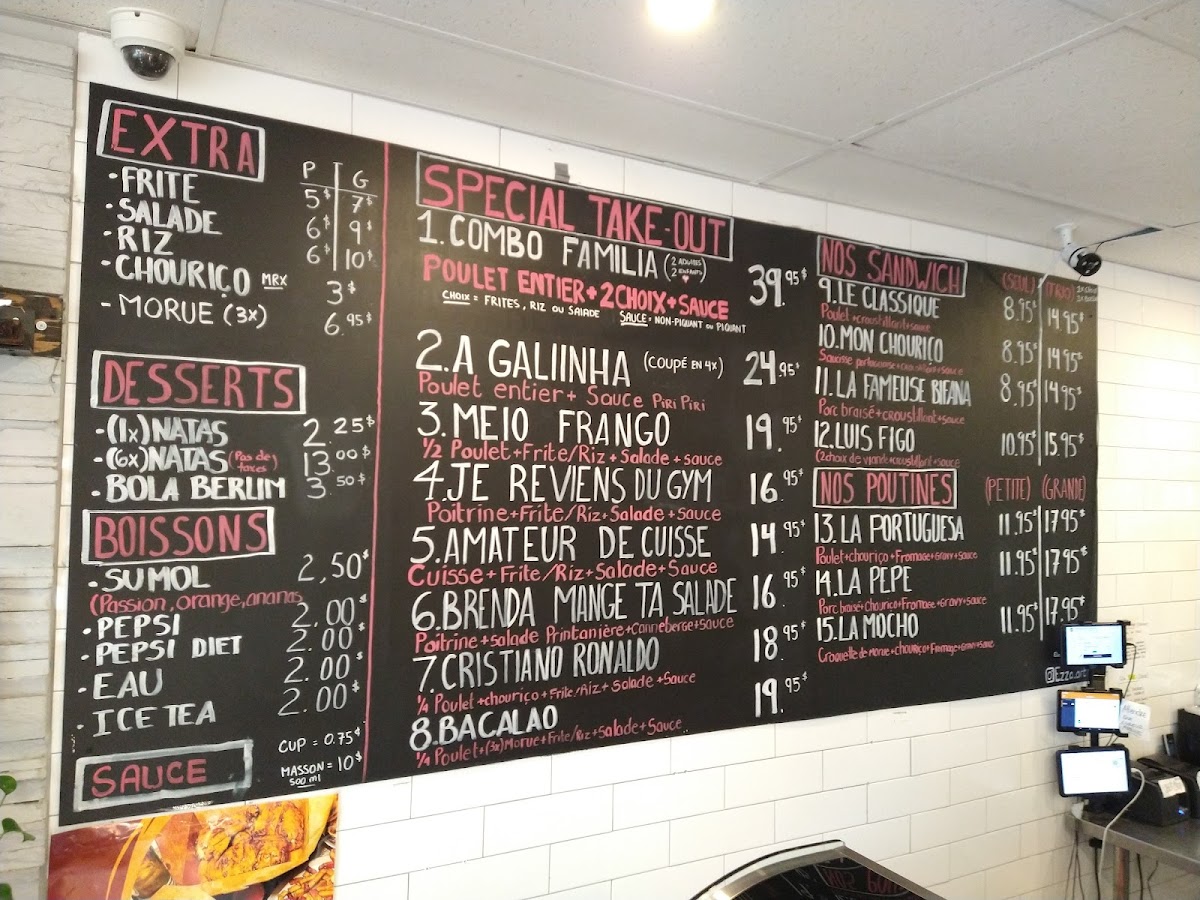 EXTRA
P G
·FRITE 5$ 7$
·SALADE 6$ 9$
·RIZ 6$ 10$
·CHOURIÇO MRX 3$
·MORUE (3x) 6.95$
DESSERTS
·(1x)NATAS 2.25$
·(6x)NATAS (Pas de taxes) 13.00$
·BOLA BERLIM 3.50$
BOISSONS
·SUMOL 2,50$
(Passion, orange, ananas
·PEPSI 2.00$
·PEPSI DIET 2.00$
·EAU 2.00$
·ICE TEA 2.00$
SAUCE
CUP = 0.75$
MASSON = 10$
500 ml
SPECIAL TAKE-OUT
1.COMBO FAMILIA (2 ADULTES 2 ENFANTS) 39.95$
POULET ENTIER+2CHOIX+SAUCE
CHOIX = FRITES, RIZ OU SALADE SAUCE = NON-PIQUANT OU PIQUANT
2.A GALIINHA (COUPÉ EN 4x) 24.95$
Poulet entier + Sauce Piri Piri
3.MEIO FRANGO 19.95$
1/2 Poulet+Frite/Riz+Salade+sauce
4.JE REVIENS DU GYM 16.95$
Poitrine+Frite/Riz+Salade+sauce
5.AMATEUR DE CUISSE 14.95$
Cuisse+Frite/Riz+Salade+Sauce
6.BRENDA MANGE TA SALADE 16.95$
Poitrine+salade Printanière+Canneberge+sauce
7.CRISTIANO RONALDO 18.95$
1/4 Poulet+chouriço+Frite/Riz+Salade+Sauce
8.BACALAO 19.95$
1/4 Poulet+(3x)Morue+Frite/Riz+Salade+Sauce
NOS SANDWICH (SEUL) (TRIO)
9.LE CLASSIQUE 8.95$ 14.95$
Poulet+croustillant+sauce
10.MON CHOURICO 8.95$ 14.95$
Saucisse portugaise+croustillant+sauce
11.LA FAMEUSE BIFANA 8.95$ 14.95$
Porc braisé+croustillant+sauce
12.LUIS FIGO 10.95$ 15.95$
(2choix de viande+croustillant+sauce
NOS POUTINES (PETITE) (GRANDE)
13.LA PORTUGUESA 11.95$ 17.95$
Poulet+chouriço+Fromage+Gravy+sauce
14.LA PEPE 11.95$ 17.95$
Porc braisé+chouriço+Fromage+Gravy+sauce
15.LA MOCHO 11.95$ 17.95$
Croquette de morue+chouriço+Fromage+Gravy+sauce
Ezzo.art